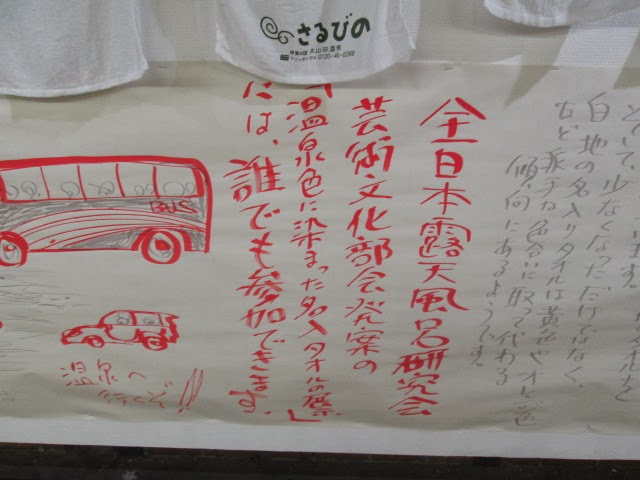 さるびの
大山田温泉
0120-46-0268
います。
として、少なくなっただけではなく、
白地の名入りタオルは黄色やオレンジ色
など派手な色合いに取って代わる
傾向にあるようです。
全日本露天風呂研究会
芸術・文化部会発案の
「温泉色に染まった名入タオルの祭」
には、誰でも参加できます。
BUS
温泉へ